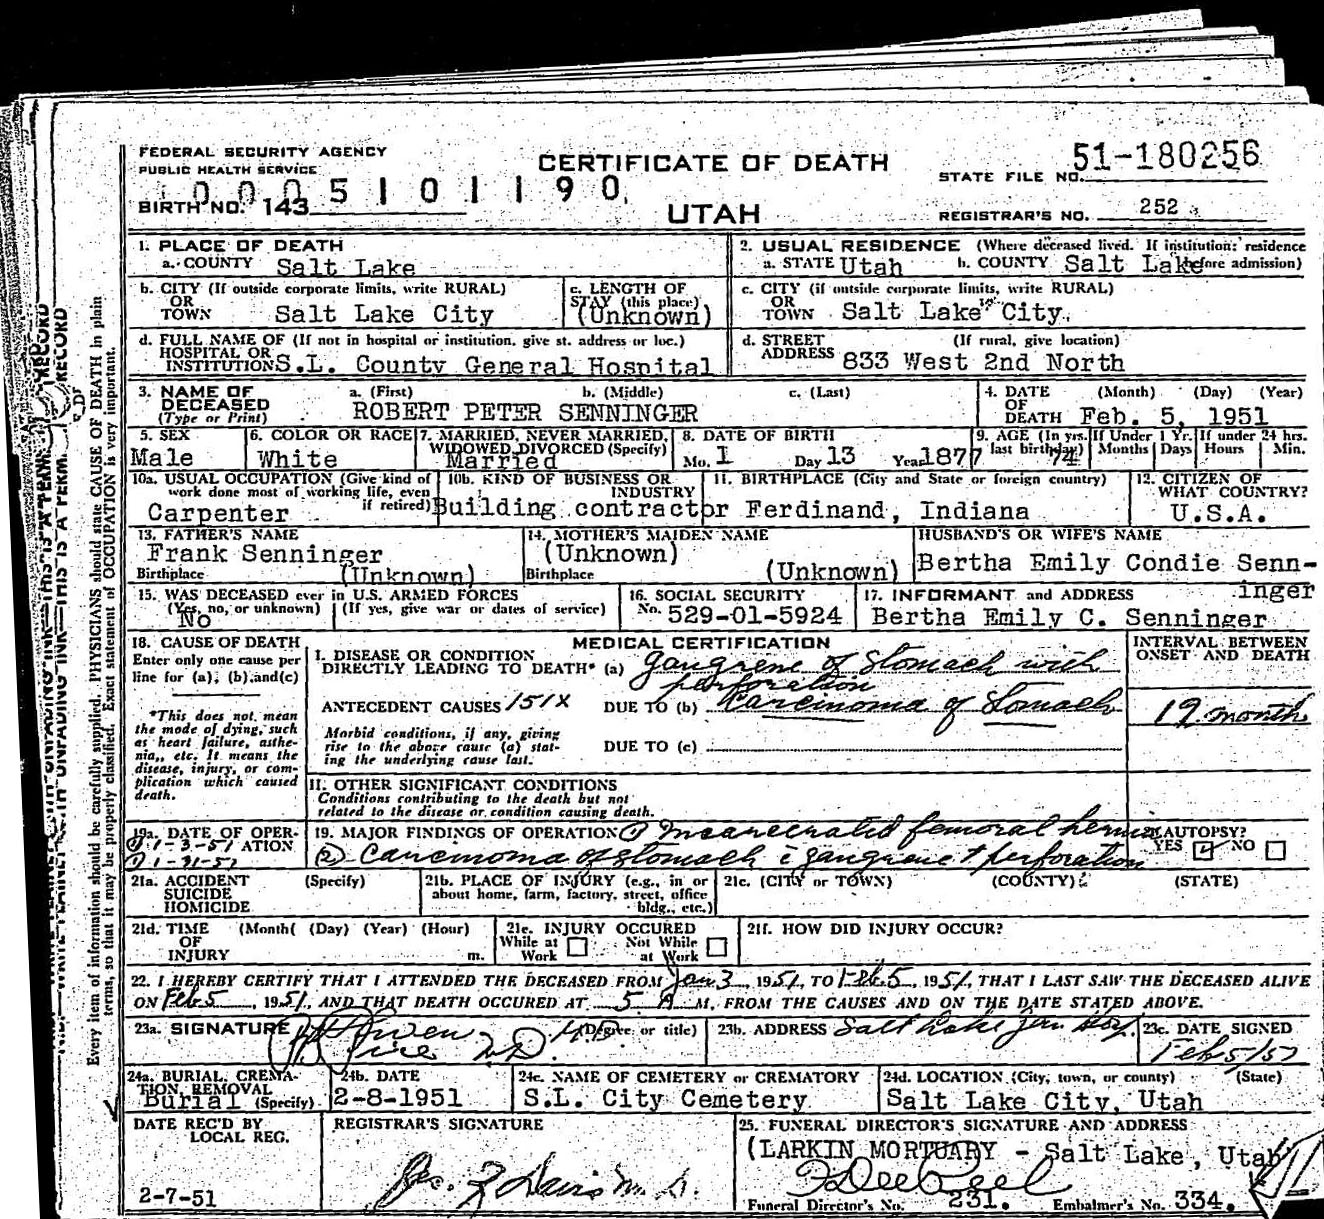 FEDERAL SECURITY AGENCY
PUBLIC HEALTH SERVICE
CERTIFICATE OF DEATH
51-180256
STATE FILE NO.
0005101190
BIRTH NO. 143
UTAH
REGISTRAR'S NO. 252
1. PLACE OF DEATH
a. COUNTY Salt Lake
2. USUAL RESIDENCE (Where deceased lived. If institution: residence before admission)
a. STATE Utah b. COUNTY Salt Lake
b. CITY (If outside corporate limits, write RURAL)
OR
TOWN Salt Lake City
c. LENGTH OF
STAY (this place)
(Unknown)
c. CITY (if outside corporate limits, write RURAL)
OR
TOWN Salt Lake City
d. FULL NAME OF (If not in hospital or institution, give st. address or loc.)
HOSPITAL OR
INSTITUTION S.L. County General Hospital
d. STREET (If rural, give location)
ADDRESS 833 West 2nd North
3. NAME OF a. (First) b. (Middle) c. (Last)
DECEASED
(Type or Print) ROBERT PETER SENNINGER
4. DATE (Month) (Day) (Year)
OF
DEATH Feb. 5, 1951
5. SEX
Male
6. COLOR OR RACE
White
7. MARRIED, NEVER MARRIED,
WIDOWED, DIVORCED (Specify)
Married
8. DATE OF BIRTH
Mo. 1 Day 13 Year 1877
9. AGE (In yrs. last birthday) 74
If Under 1 Yr. Months Days
If under 24 hrs. Hours Min.
10a. USUAL OCCUPATION (Give kind of
work done most of working life, even
if retired)
Carpenter
10b. KIND OF BUSINESS OR
INDUSTRY
Building contractor
11. BIRTHPLACE (City and State or foreign country)
Ferdinand, Indiana
12. CITIZEN OF
WHAT COUNTRY?
U.S.A.
13. FATHER'S NAME
Frank Senninger
Birthplace (Unknown)
14. MOTHER'S MAIDEN NAME
(Unknown)
Birthplace (Unknown)
HUSBAND'S OR WIFE'S NAME
Bertha Emily Condie Senn-
inger
15. WAS DECEASED ever in U.S. ARMED FORCES
(Yes, no, or unknown) (If yes, give war or dates of service)
No
16. SOCIAL SECURITY
No. 529-01-5924
17. INFORMANT and ADDRESS
Bertha Emily C. Senninger
18. CAUSE OF DEATH
Enter only one cause per
line for (a), (b), and (c)
*This does not mean
the mode of dying, such
as heart failure, asthe-
nia, etc. It means the
disease, injury, or com-
plication which caused
death.
MEDICAL CERTIFICATION
INTERVAL BETWEEN
ONSET AND DEATH
I. DISEASE OR CONDITION
DIRECTLY LEADING TO DEATH* (a) Gangrene of Stomach with
perforation
ANTECEDENT CAUSES 151X DUE TO (b) Carcinoma of Stomach
19 months
Morbid conditions, if any, giving
rise to the above cause (a) stat-
ing the underlying cause last.
DUE TO (c)
II. OTHER SIGNIFICANT CONDITIONS
Conditions contributing to the death but not
related to the disease or condition causing death.
19a. DATE OF OPER-
ATION
① 1-3-51
1-31-51
19. MAJOR FINDINGS OF OPERATION ① Incarcerated femoral hernia
② Carcinoma of stomach c̄ gangrene + perforation
AUTOPSY?
YES ☑ NO ☐
21a. ACCIDENT (Specify)
SUICIDE
HOMICIDE
21b. PLACE OF INJURY (e.g., in or
about home, farm, factory, street, office
bldg., etc.)
21c. (CITY or TOWN) (COUNTY) (STATE)
21d. TIME (Month) (Day) (Year) (Hour)
OF
INJURY m.
21e. INJURY OCCURED
While at Work ☐ Not While at Work ☐
21f. HOW DID INJURY OCCUR?
22. I HEREBY CERTIFY THAT I ATTENDED THE DECEASED FROM Jan 3, 1951, TO Feb. 5, 1951, THAT I LAST SAW THE DECEASED ALIVE
ON Feb 5, 1951, AND THAT DEATH OCCURED AT 5 A M. FROM THE CAUSES AND ON THE DATE STATED ABOVE.
23a. SIGNATURE (Degree or title)
Owen M.D.
23b. ADDRESS Salt Lake Gen Hosp.
23c. DATE SIGNED
Feb 5/51
24a. BURIAL, CREMA-
TION, REMOVAL
Burial (Specify)
24b. DATE
2-8-1951
24c. NAME OF CEMETERY or CREMATORY
S.L. City Cemetery
24d. LOCATION (City, town, or county) (State)
Salt Lake City, Utah
DATE REC'D BY
LOCAL REG.
2-7-51
REGISTRAR'S SIGNATURE
25. FUNERAL DIRECTOR'S SIGNATURE AND ADDRESS
(LARKIN MORTUARY - Salt Lake, Utah
Funeral Director's No. 231. Embalmer's No. 334.
Every item of information should be carefully supplied. PHYSICIANS should state CAUSE OF DEATH in plain
terms, so that it may be properly classified. Exact statement of OCCUPATION is very important.